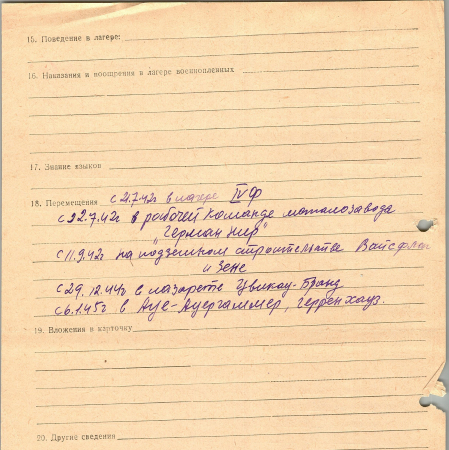 15. Поведение в лагере:
16. Наказания и поощрения в лагере военнопленных
17. Знание языков
18. Перемещения с 21.7.42г в лагере IVф
с 22.7.42г в рабочей команде металозавода
"Герман Нир"
с 11.9.42 на подземном строительстве
и Зене
с 29.12.44г в лазарете Цвикау-Бранд
с 6.1.45г в Ауе-Ауергаммер, Герренхауз.
19. Вложения в карточку
20. Другие сведения